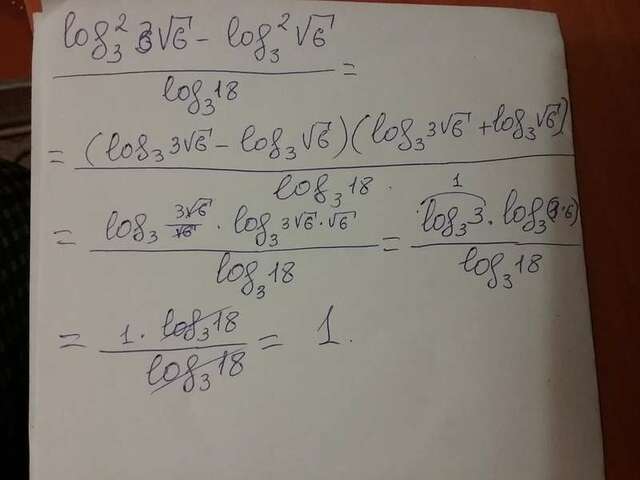 log₃² 3√6 − log₃² √6 / log₃ 18 =
= (log₃ 3√6 − log₃ √6)(log₃ 3√6 + log₃ √6) / log₃ 18
= log₃ 3√6/√6 · log₃ 3√6·√6 / log₃ 18 = log₃ 3 · log₃ (3·6) / log₃ 18
1
= 1 · log₃ 18 / log₃ 18 = 1.